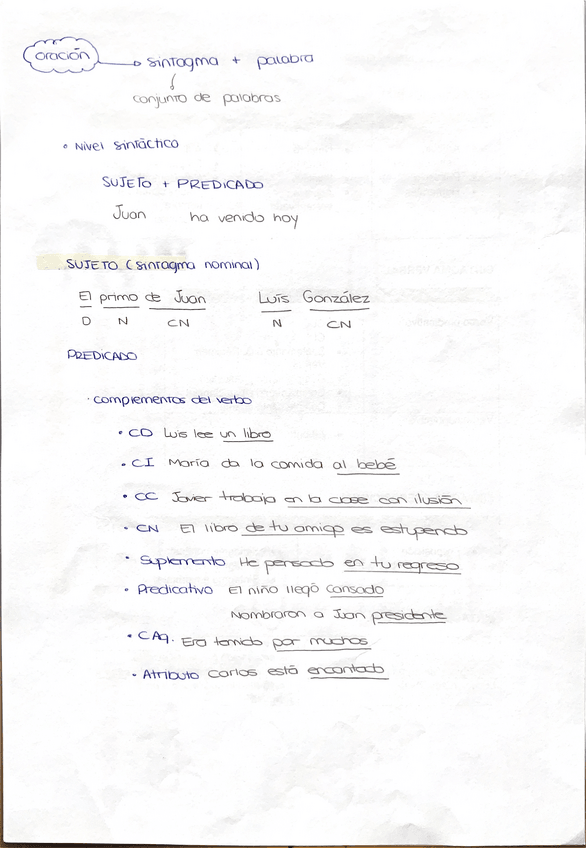 oración → sintagma + palabra
conjunto de palabras
• Nivel sintáctico
SUJETO + PREDICADO
Juan ha venido hoy
SUJETO (sintagma nominal)
El primo de Juan Luis González
D N CN N CN
PREDICADO
· complementos del verbo
• CD Luis lee un libro
• CI María da la comida al bebé
• CC Javier trabaja en la clase con ilusión
• CN El libro de tu amigo es estupendo
• Suplemento He pensado en tu regreso
• Predicativo El niño llegó cansado
Nombraron a Juan presidente
• CAg. Era temido por muchos
• Atributo Carlos está encantado